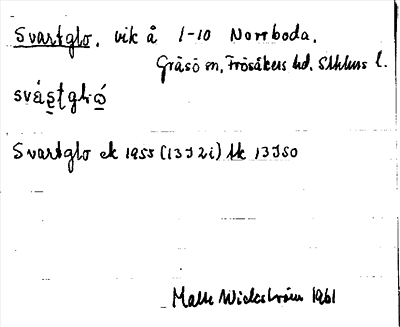 Svartglo, vik å 1-10 Norrboda,
Gräsö sn, Frösåkers hd, Sthlms l.
Svartglo ek 1955 (13J2i) tk 13JSO
Malte Wickström 1961